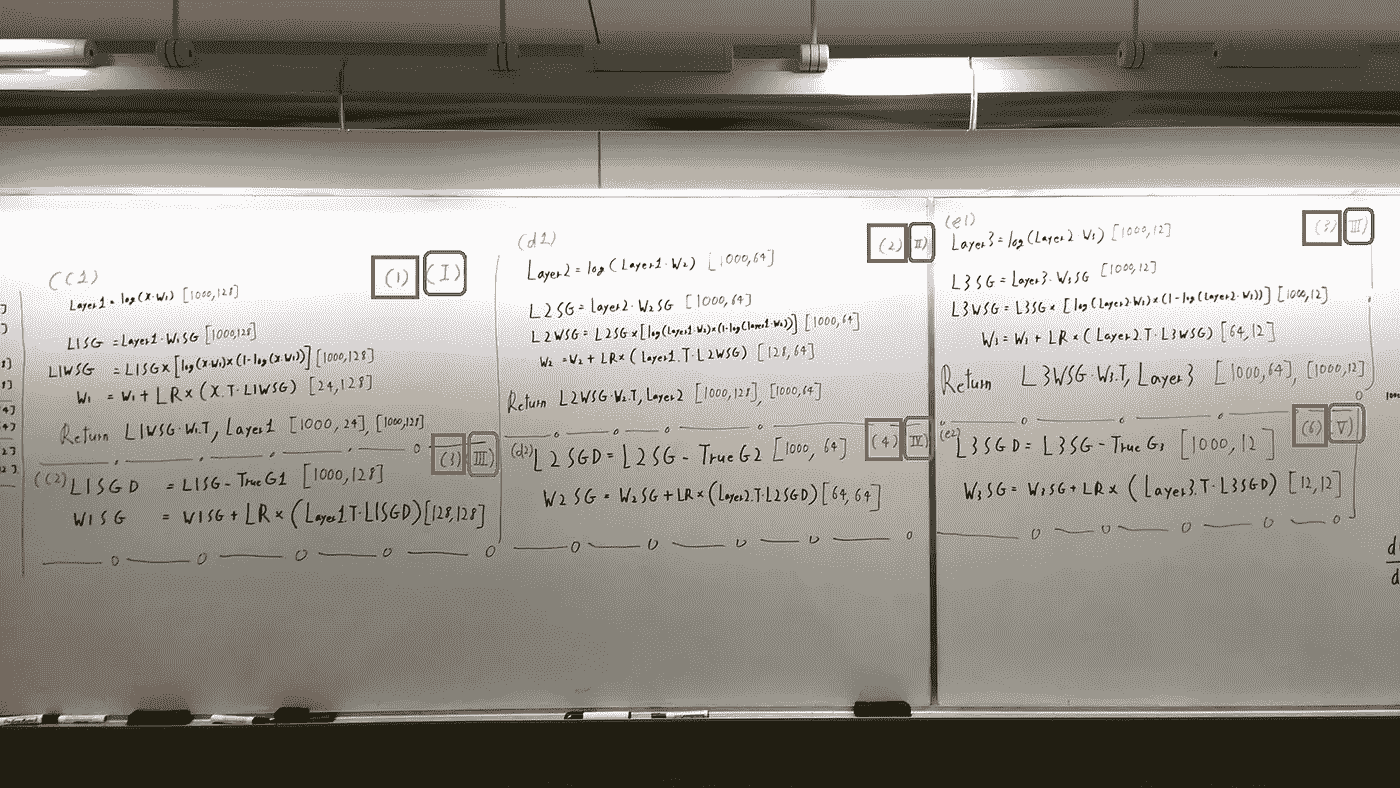 ((1)
(1) (I)
Layer1 = log(X·W1) [1000,128]
L1SG = Layer1·W1SG [1000,128]
L1WSG = L1SG×[log(X·W1)×(1-log(X·W1))] [1000,128]
W1 = W1 + LR×(X.T·L1WSG) [24,128]
Return L1WSG·W1.T, Layer1 [1000,24], [1000,128]
(3) (III)
((2) L1SGD = L1SG - TrueG1 [1000,128]
W1SG = W1SG + LR×(Layer1.T·L1SGD) [128,128]
(d1)
(2) II)
Layer2 = log(Layer1·W2) [1000,64]
L2SG = Layer2·W2SG [1000,64]
L2WSG = L2SG×[log(Layer1·W2)×(1-log(Layer1·W2))] [1000,64]
W2 = W2 + LR×(Layer1.T·L2WSG) [128,64]
Return L2WSG·W2.T, Layer2 [1000,128], [1000,64]
(4) IV)
(d2) L2SGD = L2SG - TrueG2 [1000,64]
W2SG = W2SG + LR×(Layer2.T·L2SGD) [64,64]
(e1)
(3) III)
Layer3 = log(Layer2·W3) [1000,12]
L3SG = Layer3·W3SG [1000,12]
L3WSG = L3SG×[log(Layer2·W3)×(1-log(Layer2·W3))] [1000,12]
W3 = W3 + LR×(Layer2.T·L3WSG) [64,12]
Return L3WSG·W3.T, Layer3 [1000,64], [1000,12]
(6) (V)
(e2) L3SGD = L3SG - TrueG3 [1000,12]
W3SG = W3SG + LR×(Layer3.T·L3SGD) [12,12]